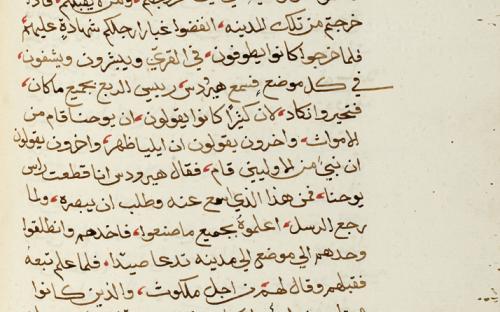 خرجتم من تلك المدينه، انفضوا غبار ارجلكم شهادةٍ عليهم،
فلما خرجوا كانوا يطوفون، في القري ويبشرون ويشفون،
في كل موضع فسمع هيرودس رييس الربع بجميع ماكان،
فتحير وانكاد، لان كثيرًا كانوا يقولون، ان يوحنا قام من
الاموات، واخرون يقولون ان ايليا ظهر، واخرون يقولون
ان نبيٌ من الاولين قام، فقال هيرودس انا قطعت راس
يوحنا، فمن هذا الذي اسمع عنه وطلب ان يبصره، ولما
رجع الرسل، اعلموهُ بجميع ماصنعوا، فاخدهم وانطلقوا
وحدهم الي موضع الي مدينه تدعا صيدا، فلما علم تبعه
فقبلهم وقال لهم من اجل ملكوت، والذين كانوا